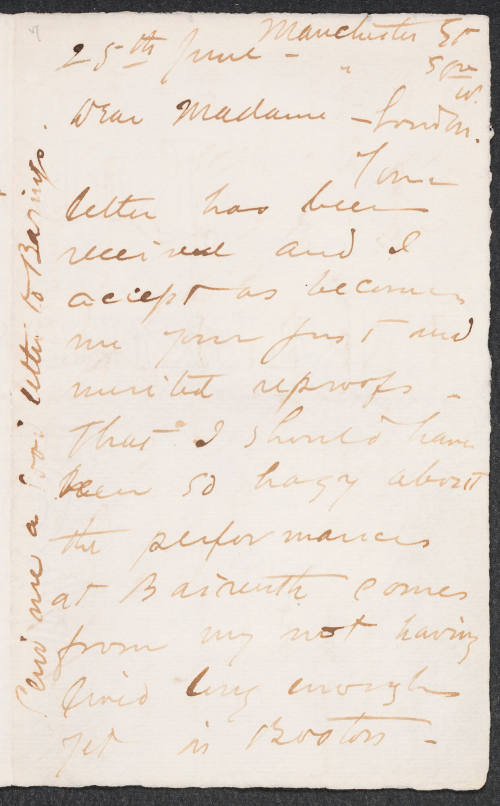 25th June - Manchester St
Sqre
W.
Dear Madame - London.
Your
letter has been
received and I
accept as becomes
me your just and
merited reproofs -
That I should have
been so hazy about
the performances
at Baireuth comes
from my not having
lived long enough
yet in Boston -
Send me a good letter to Barings.